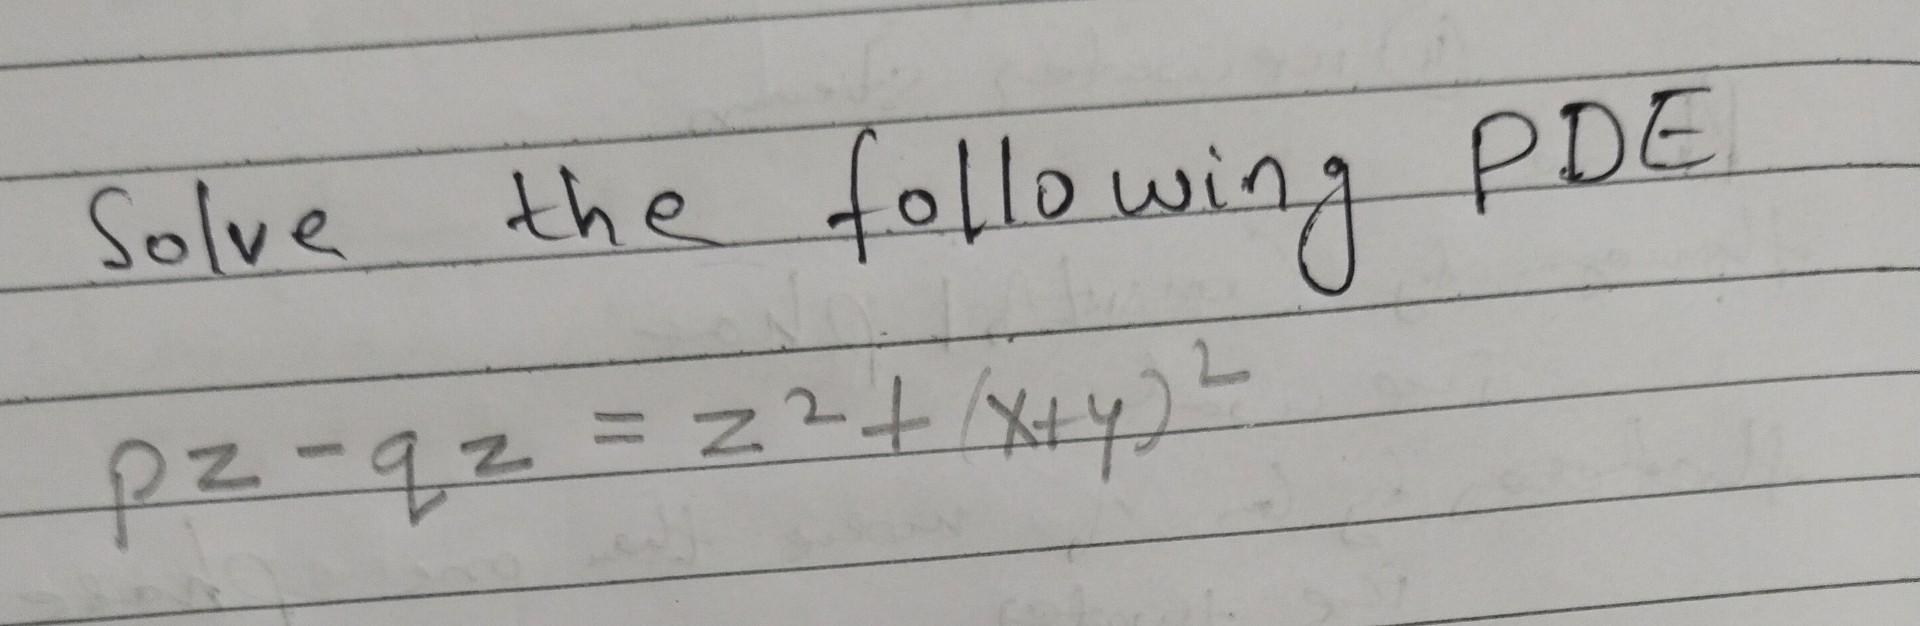 Solve the following PDE
pz - qz = z² + (x+y)²